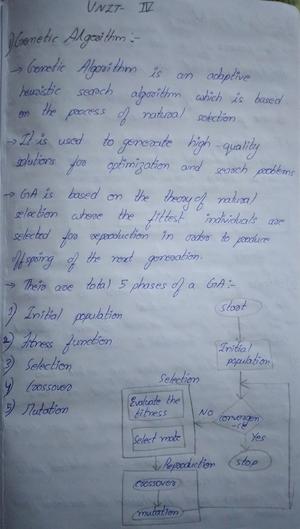 UNIT- IV
1) Genetic Algorithm :-
→ Genetic Algorithm is an adaptive
heuristic search algorithm which is based
on the process of natural selection
→ It is used to generate high-quality
solutions for optimization and search problems
→ GA is based on the theory of natural
selection where the fittest individuals are
selected for reproduction in order to produce
offspring of the next generation.
→ There are total 5 phases of a GA:-
1) Initial population
2) Fitness function
3) Selection
4) Crossover
5) Mutation
start
Initial
population
Selection
Evaluate the
fitness
Select mate
No
convergen
-ce
Yes
stop
Reproduction
crossover
mutation